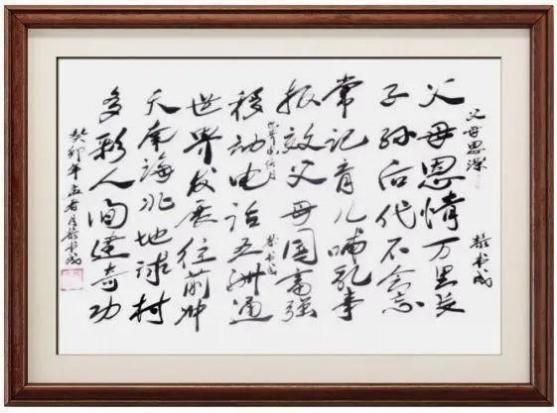 父母恩深
父母恩情万里长
子孙后代不会忘
常记育儿哺乳事
报效父母国富强
移动电话五洲通
世界发展往前冲
天南海北地球村
多彩人间建奇功
癸卯年